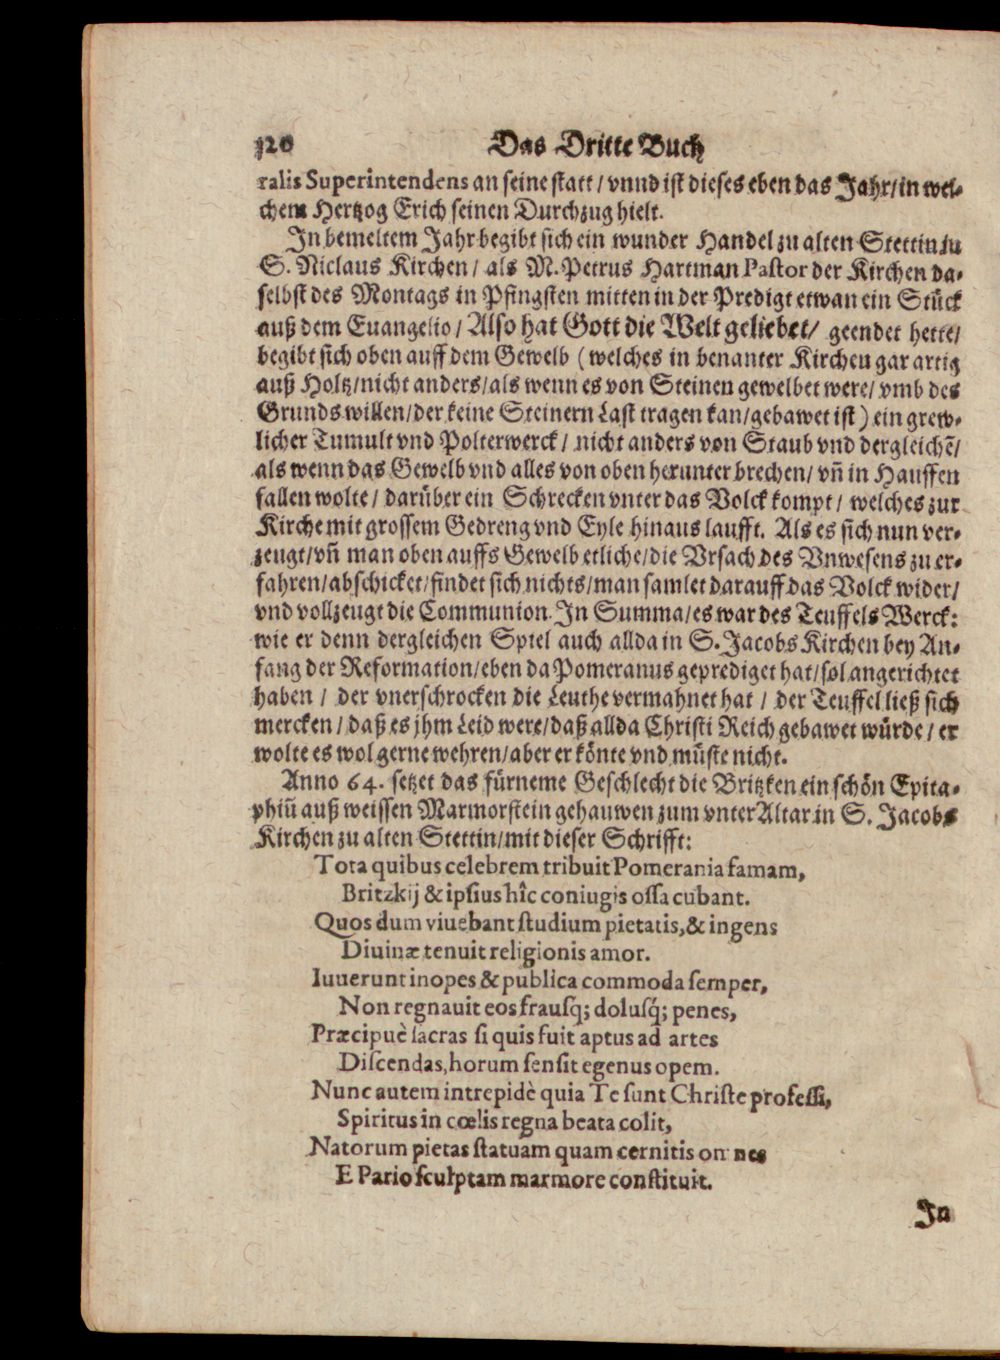 120 Das Dritte Buch
ralis Superintendens an seine statt / vnnd ist dieses eben das Jahr / in wel-
chem Hertzog Erich seinen Durchzug hielt.
In bemeltem Jahr begibt sich ein wunder Handel zu alten Stettin zu
S. Niclaus Kirchen / als M. Petrus Hartman Pastor der Kirchen da-
selbst des Montags in Pfingsten mitten in der Predigt etwan ein Stück
auß dem Euangelio / Also hat Gott die Welt geliebet / geendet hette /
begibt sich oben auff dem Gewelb (welches in benanter Kirchen gar artig
auß Holtz / nicht anders / als wenn es von Steinen gewelbet were / vmb des
Grunds willen / der keine Steinern Last tragen kan / gebawet ist) ein grew-
licher Tumult vnd Polterwerck / nicht anders von Staub vnd dergleichẽ /
als wenn das Gewelb vnd alles von oben herunter brechen / vñ in Hauffen
fallen wolte / darüber ein Schrecken vnter das Volck kompt / welches zur
Kirche mit grossem Gedreng vnd Eyle hinaus laufft. Als es sich nun ver-
zeugt / vñ man oben auffs Gewelb etliche / die Vrsach des Vnwesens zu er-
fahren / abschicket / findet sich nichts / man samlet darauff das Volck wider /
vnd vollzeugt die Communion. In Summa / es war des Teuffels Werck:
wie er denn dergleichen Spiel auch allda in S. Jacobs Kirchen bey An-
fang der Reformation / eben da Pomeranus geprediget hat / sol angerichtet
haben / der vnerschrocken die Leuthe vermahnet hat / der Teuffel ließ sich
mercken / daß es jhm Leid were / daß allda Christi Reich gebawet würde / er
wolte es wol gerne wehren / aber er könte vnd müste nicht.
Anno 64. setzet das fürneme Geschlecht die Britzken ein schön Epita-
phiũ auß weissen Marmorstein gehauwen zum vnter Altar in S. Jacobs
Kirchen zu alten Stettin / mit dieser Schrifft:
Tota quibus celebrem tribuit Pomerania famam,
Britzkij & ipsius hîc coniugis ossa cubant.
Quos dum viuebant studium pietatis, & ingens
Diuinæ tenuit religionis amor.
Iuuerunt inopes & publica commoda semper,
Non regnauit eos frausq; dolusq́; penes,
Præcipuè sacras si quis fuit aptus ad artes
Discendas, horum sensit egenus opem.
Nunc autem intrepidè quia Te sunt Christe professi,
Spiritus in cœlis regna beata colit,
Natorum pietas statuam quam cernitis omnes
E Pario sculptam marmore constituit.
In